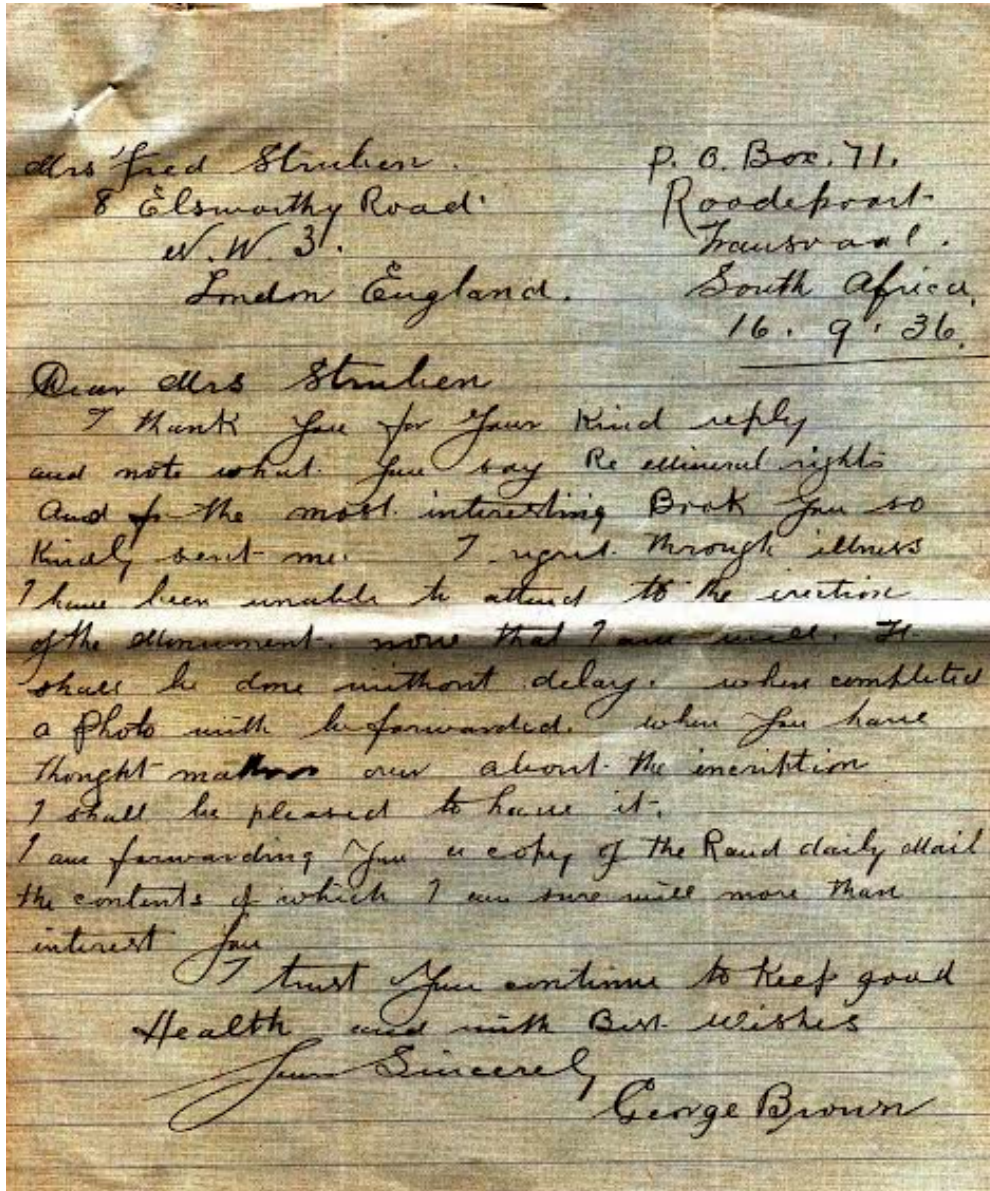 Mrs Fred Struben.
8 Elsworthy Road.
N.W. 3.
London England.
P. O. Box. 71.
Roodepoort
Transvaal.
South Africa,
16. 9. 36.
Dear Mrs Struben
I thank you for your Kind reply
and note what you say Re Mineral rights
And for the most interesting Book you so
Kindly sent me. I regret through illness
I have been unable to attend to the erection
of the Monument. now that I am well. It
shall be done without delay. when completed
a Photo will be forwarded. when you have
thought matters over about the incription
I shall be pleased to have it.
I am forwarding you a copy of the Rand daily Mail
the contents of which I am sure will more than
interest you
I trust you continue to Keep good
Health and with Best Wishes
Yours Sincerely
George Brown